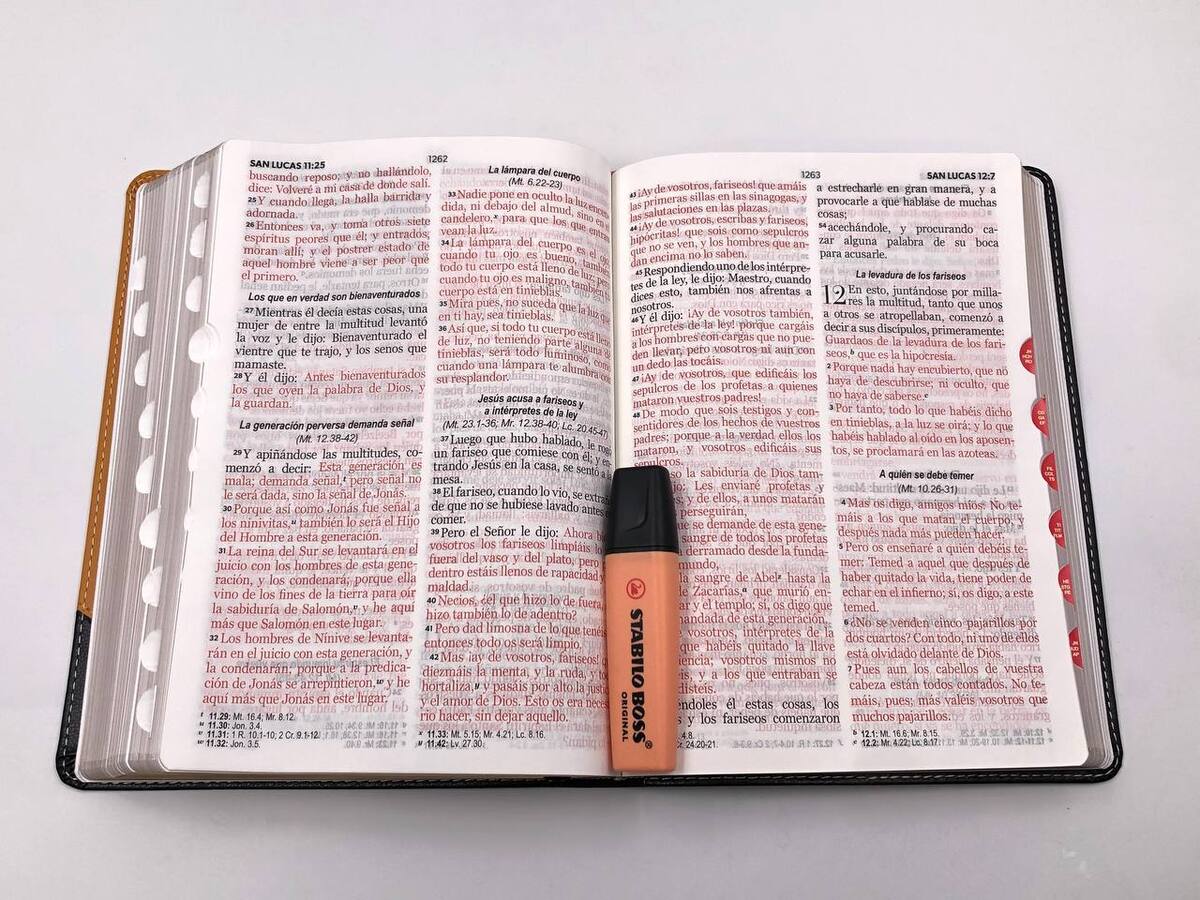 SAN LUCAS 11:25
1262
buscando reposo; y no hallándolo,
dice: Volveré a mi casa de donde salí.
25 Y cuando llega, la halla barrida y
adornada.
26 Entonces va, y toma otros siete
espíritus peores que él; y entrados,
moran allí; y el postrer estado de
aquel hombre viene a ser peor que
el primero.
Los que en verdad son bienaventurados
27 Mientras él decía estas cosas, una
mujer de entre la multitud levantó
la voz y le dijo: Bienaventurado el
vientre que te trajo, y los senos que
mamaste.
28 Y él dijo: Antes bienaventurados
los que oyen la palabra de Dios, y
la guardan.
La generación perversa demanda señal
(Mt. 12.38-42)
29 Y apiñándose las multitudes, co-
menzó a decir: Esta generación es
mala; demanda señal, pero señal no
le será dada, sino la señal de Jonás.
30 Porque así como Jonás fue señal a
los ninivitas, también lo será el Hijo
del Hombre a esta generación.
31 La reina del Sur se levantará en el
juicio con los hombres de esta gene-
ración, y los condenará; porque ella
vino de los fines de la tierra para oír
la sabiduría de Salomón, y he aquí
más que Salomón en este lugar.
32 Los hombres de Nínive se levanta-
rán en el juicio con esta generación, y
la condenarán; porque a la predica-
ción de Jonás se arrepintieron, y he
aquí más que Jonás en este lugar.
11.29: Mt. 16.4; Mr. 8.12.
11.30: Jon. 3.4.
11.31: 1 R. 10.1-10; 2 Cr. 9.1-12.
11.32: Jon. 3.5.
La lámpara del cuerpo
(Mt. 6.22-23)
33 Nadie pone en oculto la luz encen-
dida, ni debajo del almud, sino en el
candelero, para que los que entran
vean la luz.
34 La lámpara del cuerpo es el ojo;
cuando tu ojo es bueno, también
todo tu cuerpo está lleno de luz; pero
cuando tu ojo es maligno, también tu
cuerpo está en tinieblas.
35 Mira pues, no suceda que la luz que
en ti hay, sea tinieblas.
36 Así que, si todo tu cuerpo está lleno
de luz, no teniendo parte alguna de
tinieblas, será todo luminoso, como
cuando una lámpara te alumbra con
su resplandor.
Jesús acusa a fariseos y
a intérpretes de la ley
(Mt. 23.1-36; Mr. 12.38-40; Lc. 20.45-47)
37 Luego que hubo hablado, le rogó
un fariseo que comiese con él; y en-
trando Jesús en la casa, se sentó a la
mesa.
38 El fariseo, cuando lo vio, se extrañó
de que no se hubiese lavado antes de
comer.
39 Pero el Señor le dijo: Ahora bien,
vosotros los fariseos limpiáis lo de
fuera del vaso y del plato, pero por
dentro estáis llenos de rapacidad y de
maldad.
40 Necios, ¿el que hizo lo de fuera, no
hizo también lo de adentro?
41 Pero dad limosna de lo que tenéis,
entonces todo os será limpio.
42 Mas ¡ay de vosotros, fariseos! que
diezmáis la menta, y la ruda, y toda
hortaliza, y pasáis por alto la justicia
y el amor de Dios. Esto os era nece-
rio hacer, sin dejar aquello.
11.33: Mt. 5.15; Mr. 4.21; Lc. 8.16.
11.42: Lv. 27.30.
1263
SAN LUCAS 12:7
43 ¡Ay de vosotros, fariseos! que amáis
las primeras sillas en las sinagogas, y
las salutaciones en las plazas.
44 ¡Ay de vosotros, escribas y fariseos,
hipócritas! que sois como sepulcros
que no se ven, y los hombres que an-
dan encima no lo saben.
45 Respondiendo uno de los intérpre-
tes de la ley, le dijo: Maestro, cuando
dices esto, también nos afrentas a
nosotros.
46 Y él dijo: ¡Ay de vosotros también,
intérpretes de la ley! porque cargáis
a los hombres con cargas que no pue-
den llevar, pero vosotros ni aun con
un dedo las tocáis.
47 ¡Ay de vosotros, que edificáis los
sepulcros de los profetas a quienes
mataron vuestros padres!
48 De modo que sois testigos y con-
sentidores de los hechos de vuestros
padres; porque a la verdad ellos los
mataron, y vosotros edificáis sus
sepulcros.
so la sabiduría de Dios tam-
Les enviaré profetas y
y de ellos, a unos matarán
perseguirán,
se demande de esta gene-
sangre de todos los profetas
derramado desde la funda-
mundo,
la sangre de Abel hasta la
de Zacarías, que murió en-
y el templo; sí, os digo que
andada de esta generación.
vosotros, intérpretes de la
que habéis quitado la llave
iencia; vosotros mismos no
y a los que entraban se
disteis.
éndoles él estas cosas, los
y los fariseos comenzaron
4.8.
Cr. 24.20-21.
a estrecharle en gran manera, y a
provocarle a que hablase de muchas
cosas;
54 acechándole, y procurando ca-
zar alguna palabra de su boca
para acusarle.
La levadura de los fariseos
12 En esto, juntándose por milla-
res la multitud, tanto que unos
a otros se atropellaban, comenzó a
decir a sus discípulos, primeramente:
Guardaos de la levadura de los fari-
seos, que es la hipocresía.
2 Porque nada hay encubierto, que no
haya de descubrirse; ni oculto, que
no haya de saberse.
3 Por tanto, todo lo que habéis dicho
en tinieblas, a la luz se oirá; y lo que
habéis hablado al oído en los aposen-
tos, se proclamará en las azoteas.
A quién se debe temer
(Mt. 10.26-31)
4 Mas os digo, amigos míos: No te-
máis a los que matan el cuerpo, y
después nada más pueden hacer.
5 Pero os enseñaré a quién debéis te-
mer: Temed a aquel que después de
haber quitado la vida, tiene poder de
echar en el infierno; sí, os digo, a este
temed.
6 ¿No se venden cinco pajarillos por
dos cuartos? Con todo, ni uno de ellos
está olvidado delante de Dios.
7 Pues aun los cabellos de vuestra
cabeza están todos contados. No te-
máis, pues; más valéis vosotros que
muchos pajarillos.
12.1: Mt. 16.6; Mr. 8.15.
12.2: Mr. 4.22; Lc. 8.17.
STABILO BOSS
ORIGINAL